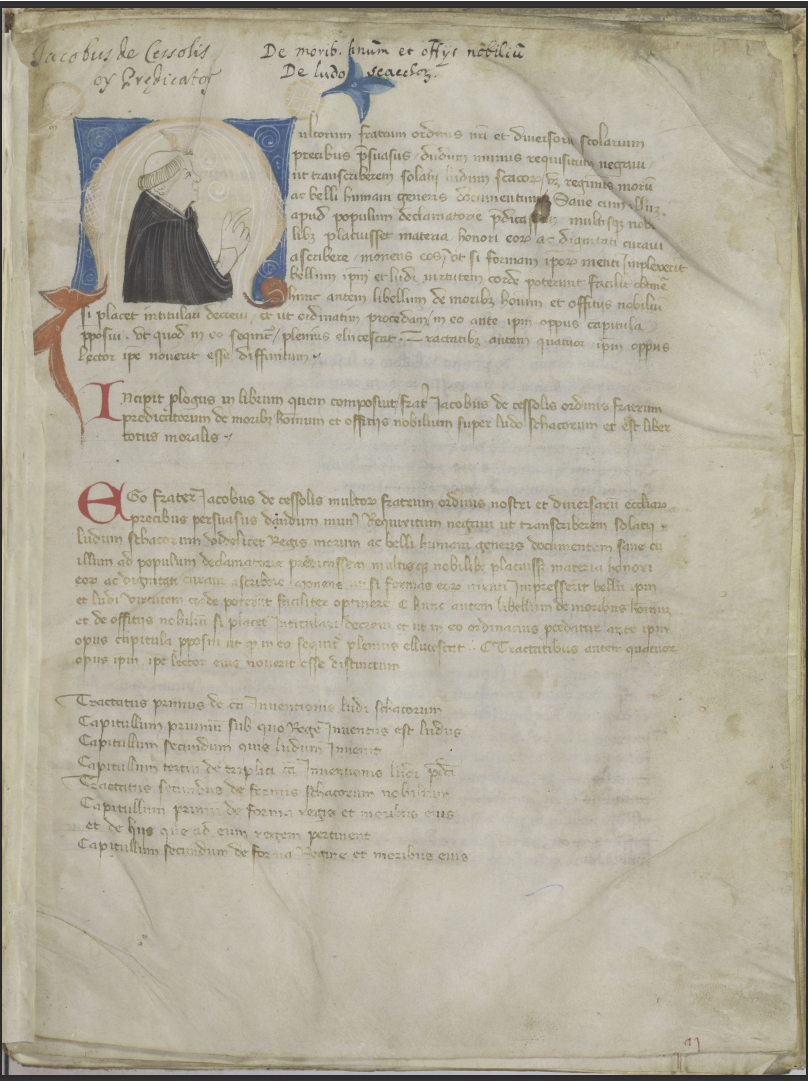 Jacobus de Cessolis
De morib. hinum et offijs nobiliū
oȳ Predicator
De ludo scacchoȝ.
ultorum fratrum ordinis nr̄i et diversorū scolarium
precibus p̄suasus dudum requisitum negavi
ut transcriberem solatij ludum scacoꝝ regimis morū
ac belli humani generis documentum Sane cum illuȝ
apud populum declamatorie multisqȝ nobi
libȝ placuisset materia honori eoꝝ ac dignitati curavi
ascribere monens eos ut si formam ipoꝝ menti impleverit
bellum ipm̄ et ludi virtutem corde poterunt facilit obtinē
hunc autem libellum de moribȝ hoīum et offitijs nobiliū
si placet intitulari decrevi et ut ordinatim procedam in eo ante ipm̄ oppus capitula
ꝓposui ut quod in eo sequit᷑ plenius elucescat Tractatibȝ autem quatuor ipm̄ oppus
lector ipe noverit esse diffinitum
Incipit ꝓlogus in librum quem composuit frat᷑ Jacobus de cessolis ordinis fratrum
predicatorum de moribȝ hominum et offitijs nobilium super ludo schacorum et est liber
totus moralis
Ego frater Jacobus de cessolis multoꝝ fratrum ordinis nostri et diversarū
precibus persuasus dandum Requisitum negavi ut transcriberem solatij
ludum schacorum videlicet Regis morum ac belli humani generis documentum sane cū
illum ad populum declamatorie predicassem multisqȝ nobilibȝ placuisset materia honori
eoꝝ ac dignitati curam ascribere monens ut si formas eoꝝ menti Impresserit bellū ipm̄
et ludi virtutem corde poterunt faciliter optinere Hunc autem libellum de moribus hominū
et de offitijs nobiliū si placet Intitulari decrevi et ut in eo ordinatius procedatur ante ipm̄
opus capitula ꝓposui ut ꝙ in eo sequit᷑ plenius ellucescat Tractatibus autem quatuor
opus ipm̄ ipe lector eius noverit esse distinctum
Tractatus primus de cā Inventionis ludi schacorum
Capitullum primum sub quo Rege Inventus est ludus
Capitullum secundum quis ludum Invenit
Capitullum tertiū de triplici cā Inventionis ludi p̄dcī
Tractatus secundus de formis schacorum nobilium
Capitullum primū de forma regis et moribus eius
et de hijs que ad eum regem pertinent
Capitullum secundum de forma Regine et moribus eius